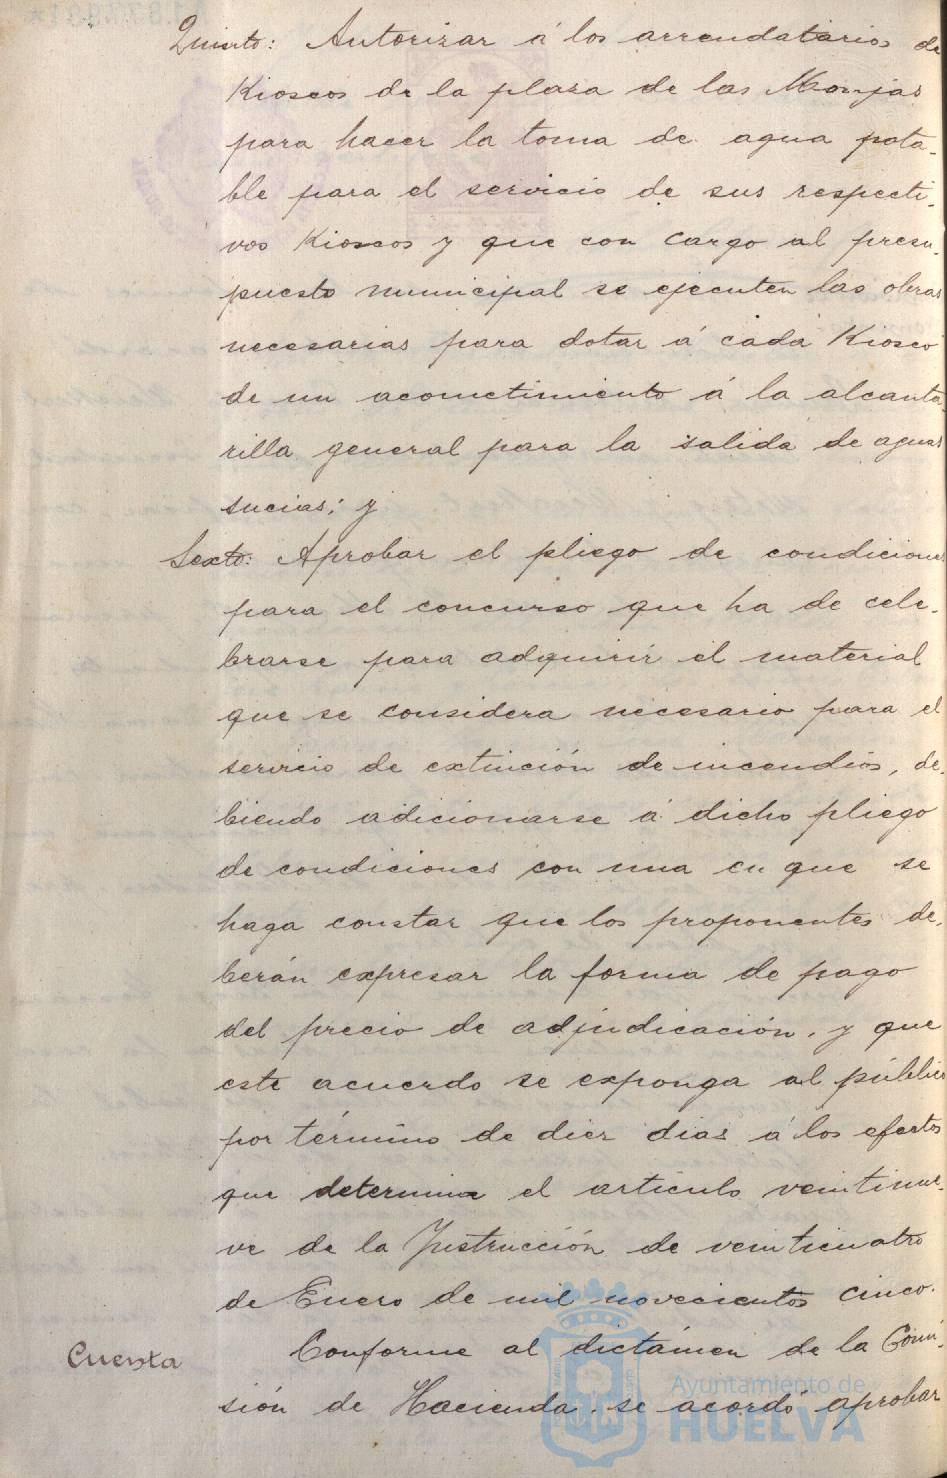 Quinto: Autorizar á los arrendatarios de
Kioscos de la plaza de las Monjas
para hacer la toma de agua pota-
ble para el servicio de sus respecti-
vos Kioscos y que con cargo al presu-
puesto municipal se ejecuten las obras
necesarias para dotar á cada Kiosco
de un acometimiento á la alcanta
rilla general para la salida de aguas
sucias; y
Sexto: Aprobar el pliego de condiciones
para el concurso que ha de cele-
brarse para adquirir el material
que se considera necesario para el
servicio de extinción de incendios, de-
biendo adicionarse á dicho pliego
de condiciones con una en que se
haga constar que los proponentes de-
berán expresar la forma de pago
del precio de adjudicación, y que
este acuerdo se exponga al público
por término de diez dias á los efectos
que determina el artículo veintinue-
ve de la Instrucción de veinticuatro
de Enero de mil novecientos cinco.
Cuenta Conforme al dictámen de la Comi-
sión de Hacienda se acordó aprobar
Ayuntamiento de
HUELVA